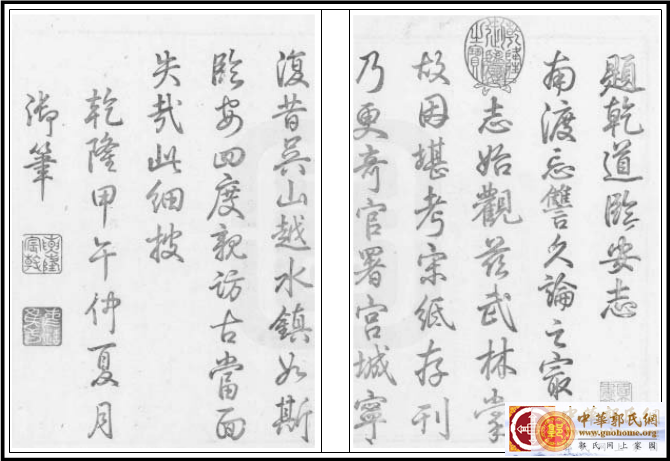 題乾道臨安志
南渡忘讐久論之
志始觀茲武林掌
故因堪考宋紙存刊
乃更奇官署宮城寧
復昔吳山越水鎮如斯
臨安四度親訪古當面
失哉此細披
乾隆甲午仲夏月
御筆
乾隆御覽之寶
中華郭氏網
www.gnohome.org
郭氏网上家園